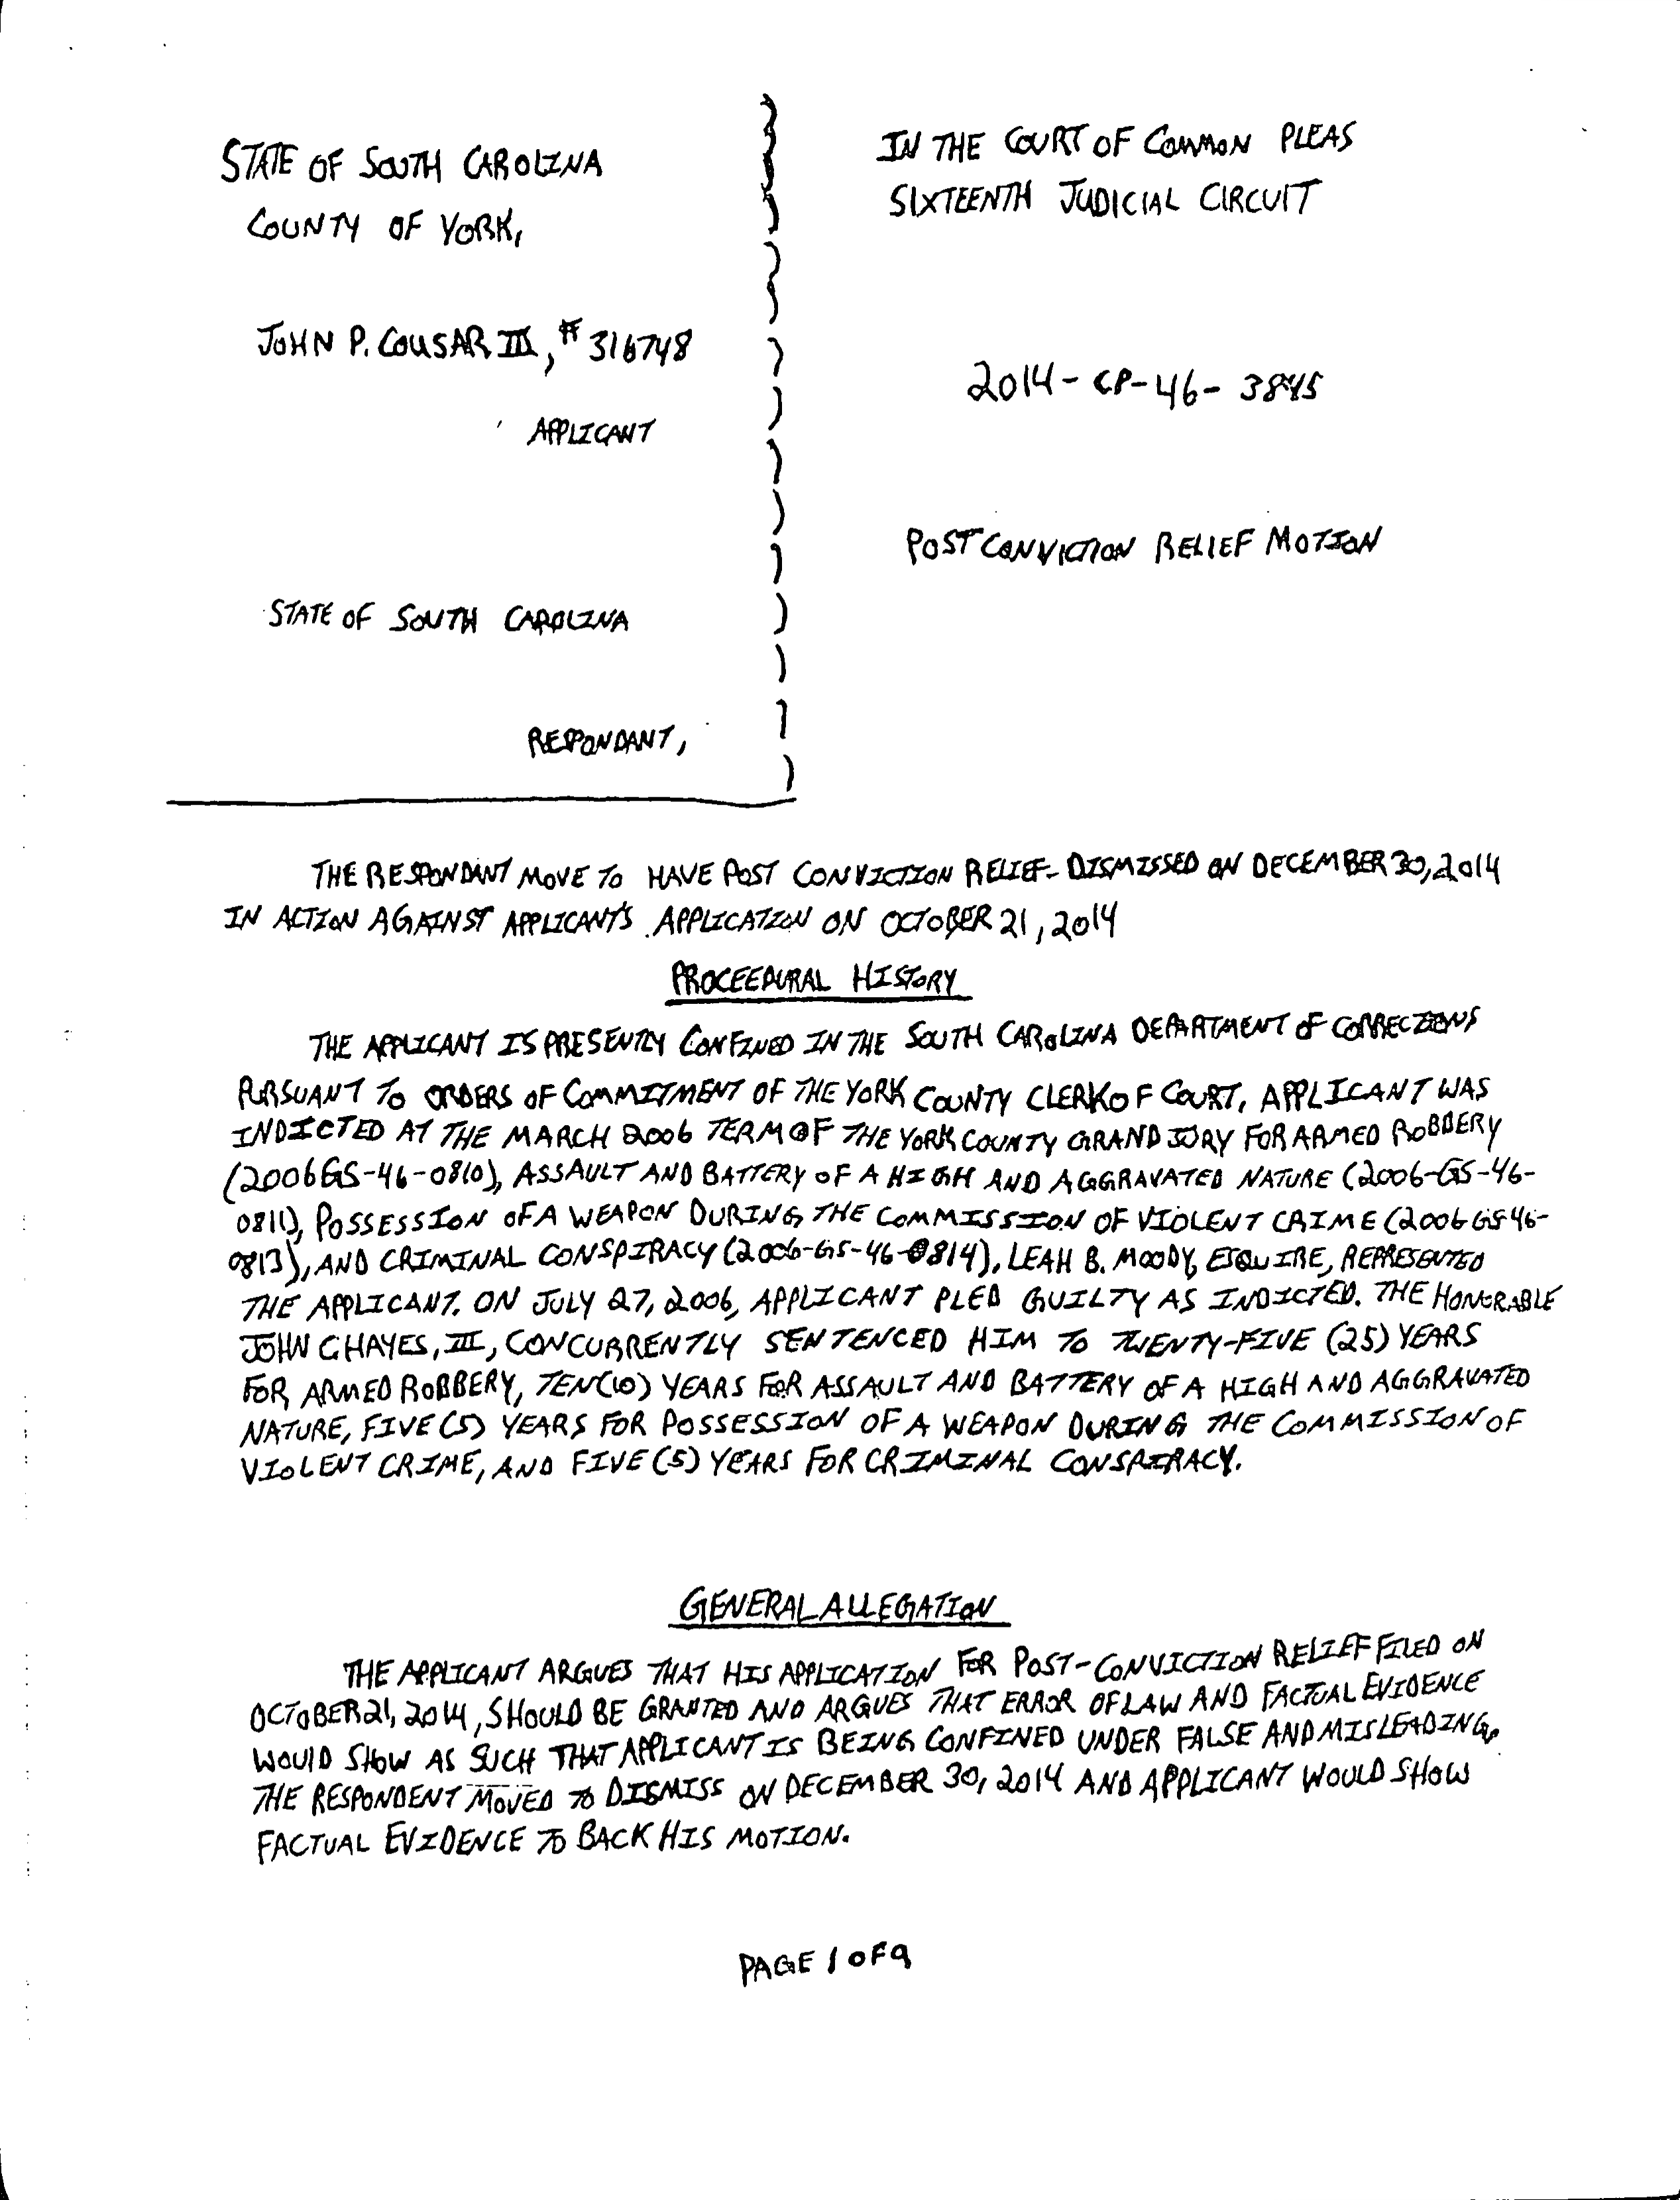 STATE OF SOUTH CAROLINA
COUNTY OF YORK,
JOHN P. COUSAR III, # 316748
APPLICANT
STATE OF SOUTH CAROLINA
RESPONDANT,
IN THE COURT OF COMMON PLEAS
SIXTEENTH JUDICIAL CIRCUIT
2014-CP-46-3845
POST CONVICTION RELIEF MOTION
THE RESPONDANT MOVE TO HAVE POST CONVICTION RELIEF DISMISSED ON DECEMBER 30, 2014
IN ACTION AGAINST APPLICANTS APPLICATION ON OCTOBER 21, 2014
PROCEEDURAL HISTORY
THE APPLICANT IS PRESENTLY CONFINED IN THE SOUTH CAROLINA DEPARTMENT OF CORRECTIONS
PURSUANT TO ORDERS OF COMMITMENT OF THE YORK COUNTY CLERK OF COURT, APPLICANT WAS
INDICTED AT THE MARCH 2006 TERM OF THE YORK COUNTY GRAND JURY FOR ARMED ROBBERY
(2006GS-46-0810), ASSAULT AND BATTERY OF A HIGH AND AGGRAVATED NATURE (2006-GS-46-
0811), POSSESSION OF A WEAPON DURING THE COMMISSION OF VIOLENT CRIME (2006 GS 46-
0813), AND CRIMINAL CONSPIRACY (2006-GS-46-0814), LEAH B. MOODY, ESQUIRE, REPRESENTED
THE APPLICANT. ON JULY 27, 2006, APPLICANT PLED GUILTY AS INDICTED. THE HONORABLE
JOHN C HAYES, III, CONCURRENTLY SENTENCED HIM TO TWENTY-FIVE (25) YEARS
FOR ARMED ROBBERY, TEN (10) YEARS FOR ASSAULT AND BATTERY OF A HIGH AND AGGRAVATED
NATURE, FIVE (5) YEARS FOR POSSESSION OF A WEAPON DURING THE COMMISSION OF
VIOLENT CRIME, AND FIVE (5) YEARS FOR CRIMINAL CONSPIRACY.
GENERAL ALLEGATION
THE APPLICANT ARGUES THAT HIS APPLICATION FOR POST-CONVICTION RELIEF FILED ON
OCTOBER 21, 2014, SHOULD BE GRANTED AND ARGUES THAT ERROR OF LAW AND FACTUAL EVIDENCE
WOULD SHOW AS SUCH THAT APPLICANT IS BEING CONFINED UNDER FALSE AND MISLEADING.
THE RESPONDENT MOVED TO DISMISS ON DECEMBER 30, 2014 AND APPLICANT WOULD SHOW
FACTUAL EVIDENCE TO BACK HIS MOTION.
PAGE 1 OF 9